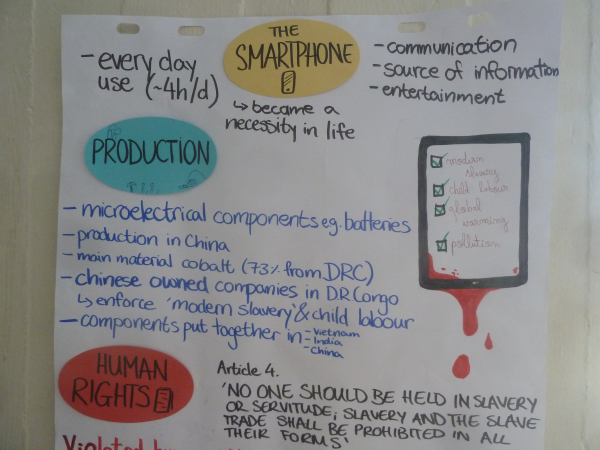 THE
SMARTPHONE
- every day
use (~4h/d)
- communication
- source of information
- entertainment
↳ became a
necessity in life
PRODUCTION
- microelectrical components eg. batteries
- production in China
- main material cobalt (73% from DRC)
- chinese owned companies in D.R.Congo
↳ enforce 'modern slavery' & child labour
- components put together in - Vietnam
- India
- China
modern
slavery
child labour
global
warming
pollution
HUMAN
RIGHTS
Article 4.
'NO ONE SHOULD BE HELD IN SLAVERY
OR SERVITUDE; SLAVERY AND THE SLAVE
TRADE SHALL BE PROHIBITED IN ALL
THEIR FORMS'
Violated